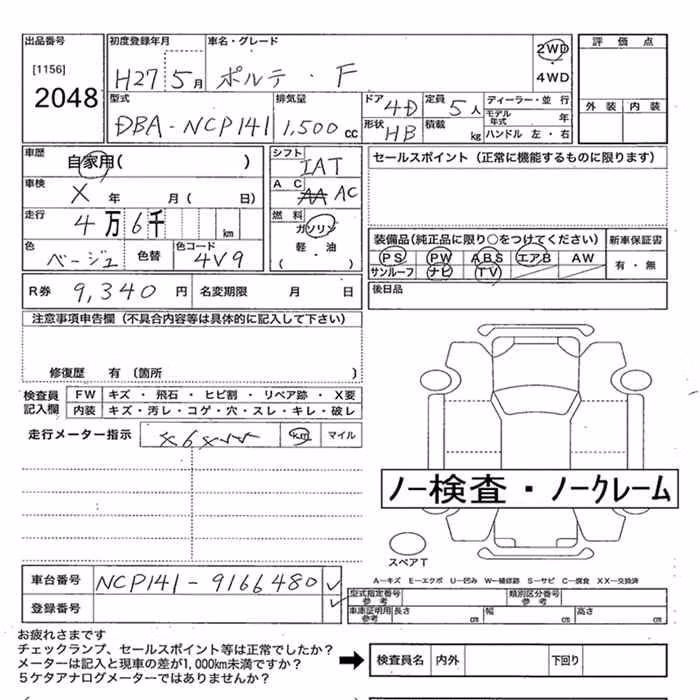 出品番号 初度登録年月 車名・グレード 評価点
[1156] 2048 H27 5月 ポルテ・F 2WD 4WD
外装 内装
型式 排気量 ドア 4D 定員 5人 ディーラー・並行
DBA-NCP141 1,500cc 形状 HB 積載 kg モデル年式 年
ハンドル 左・右
車歴 自家用( ) シフト IAT セールスポイント(正常に機能するものに限ります)
車検 X 年 月( 日) AC AC
走行 4万6千 km 燃料 ガソリン 軽・油 ( )
装備品(純正品に限り○をつけてください) 新車保証書
PS PW ABS エアB AW 有・無
サンルーフ ナビ TV
色 ベージュ 色替 色コード 4V9
後日品
R券 9,340円 名変期限 月 日
注意事項申告欄(不具合内容等は具体的に記入して下さい)
修復歴 有 (箇所 )
検査員記入欄 FW キズ・飛石・ヒビ割・リペア跡・X要
内装 キズ・汚レ・コゲ・穴・スレ・キレ・破レ
走行メーター指示 km マイル
ノー検査・ノークレーム
スペアT
A―キズ E―エクボ U―凹み W―補修跡 S―サビ C―腐食 XX―交換済
車台番号 NCP141-9166480
登録番号
型式指定番号 参考 類別区分番号 参考
車庫証明用 参考 長さ cm 幅 cm 高さ cm
お疲れさまです
チェックランプ、セールスポイント等は正常でしたか?
メーターは記入と現車の差が1,000km未満ですか?
5ケタアナログメーターではありませんか?
検査員名 内外 下回り